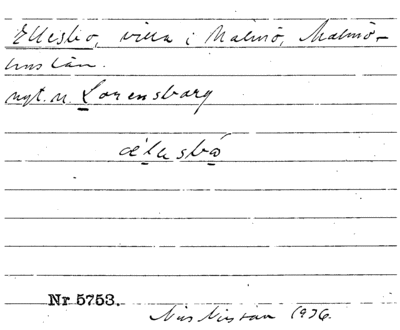 Ellesbo, villa i Malmö, Malmö-
hus län.
nyt. n. Lorensborg
Nr 5753.
Nils Nilsson 1936.